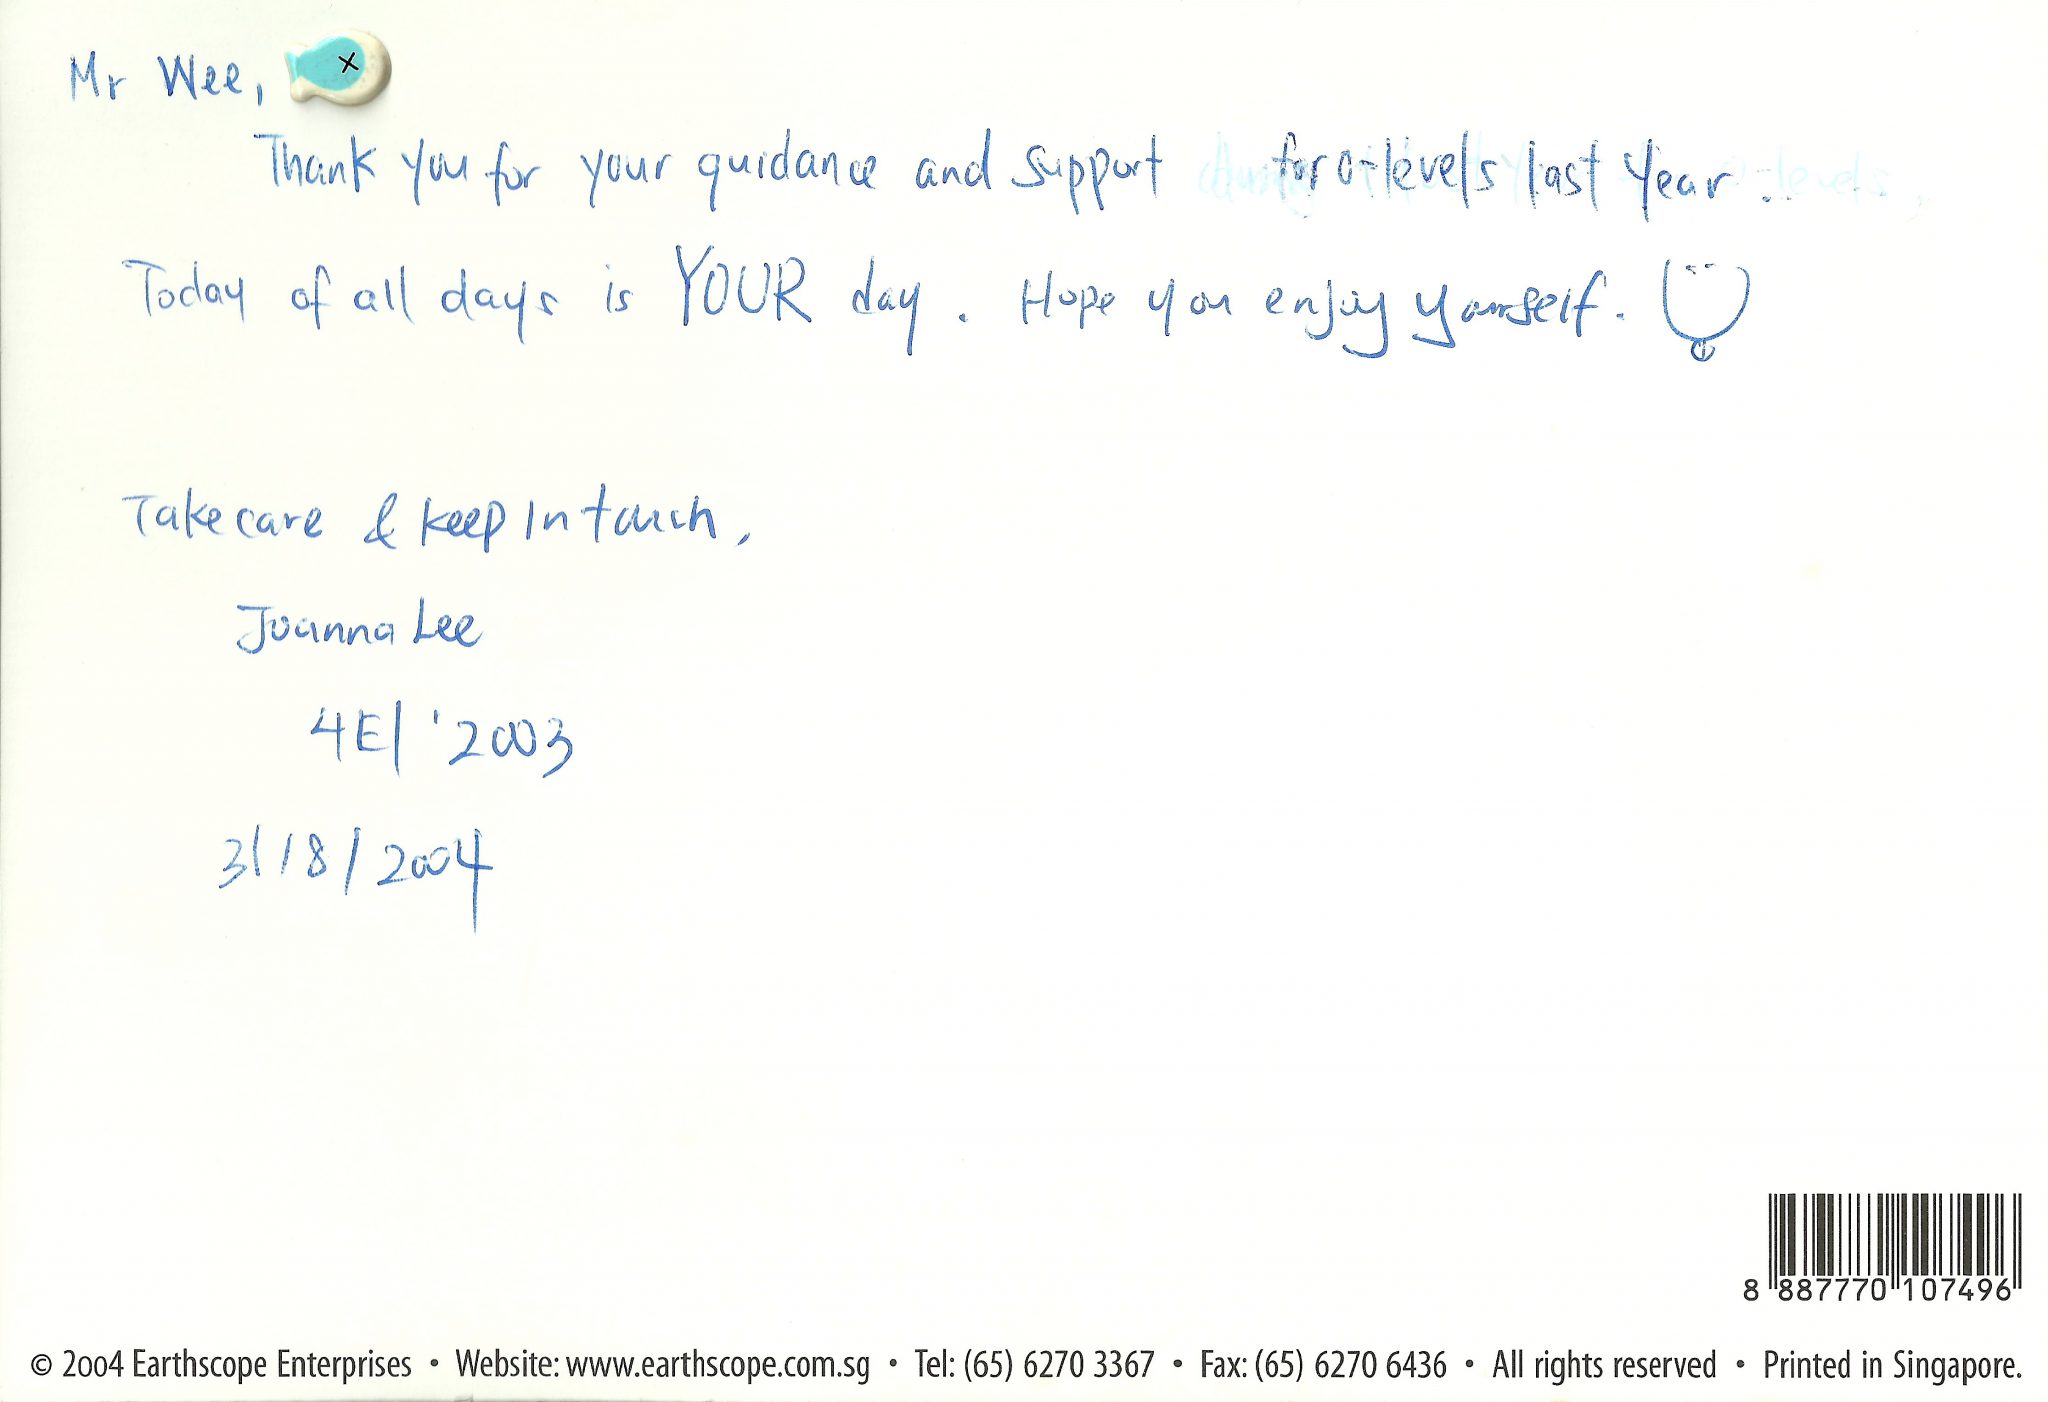 Mr Wee,
Thank you for your guidance and support for O-levels last year.
Today of all days is YOUR day. Hope you enjoy yourself.
Take care & keep in touch,
Joanna Lee
4E1 '2003
31/8/2004
8 887770 107496
© 2004 Earthscope Enterprises • Website: www.earthscope.com.sg • Tel: (65) 6270 3367 • Fax: (65) 6270 6436 • All rights reserved • Printed in Singapore.